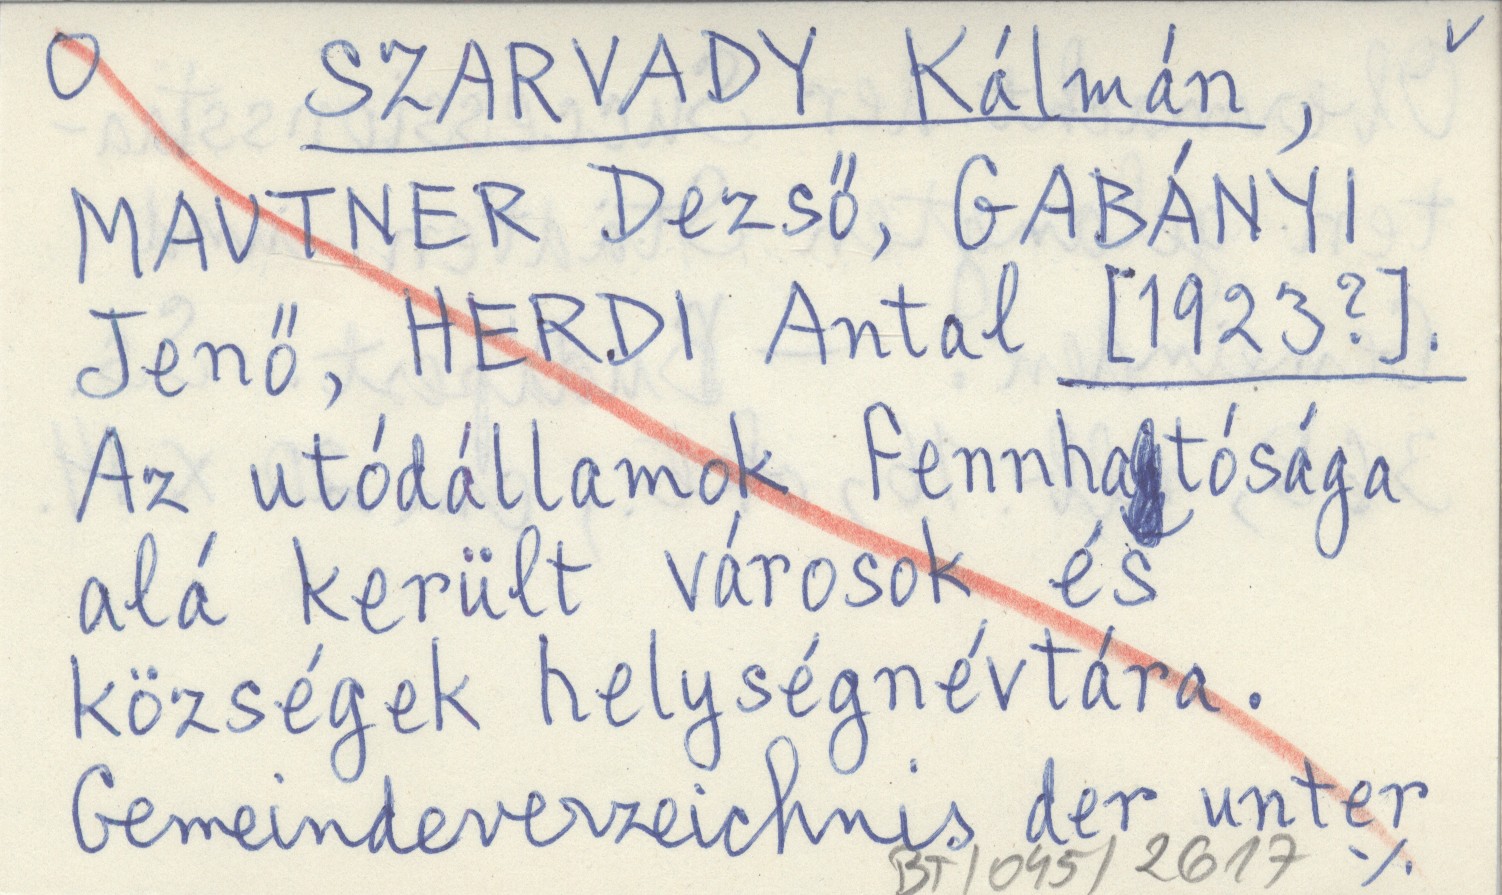 O SZARVADY Kálmán, v
MAVTNER Dezső, GABÁNYI
Jenő, HERDI Antal [1923?].
Az utódállamok fennhatósága
alá került városok és
községek helységnévtára.
Gemeindeverzeichnis der unter
-/.
BT/045/2617